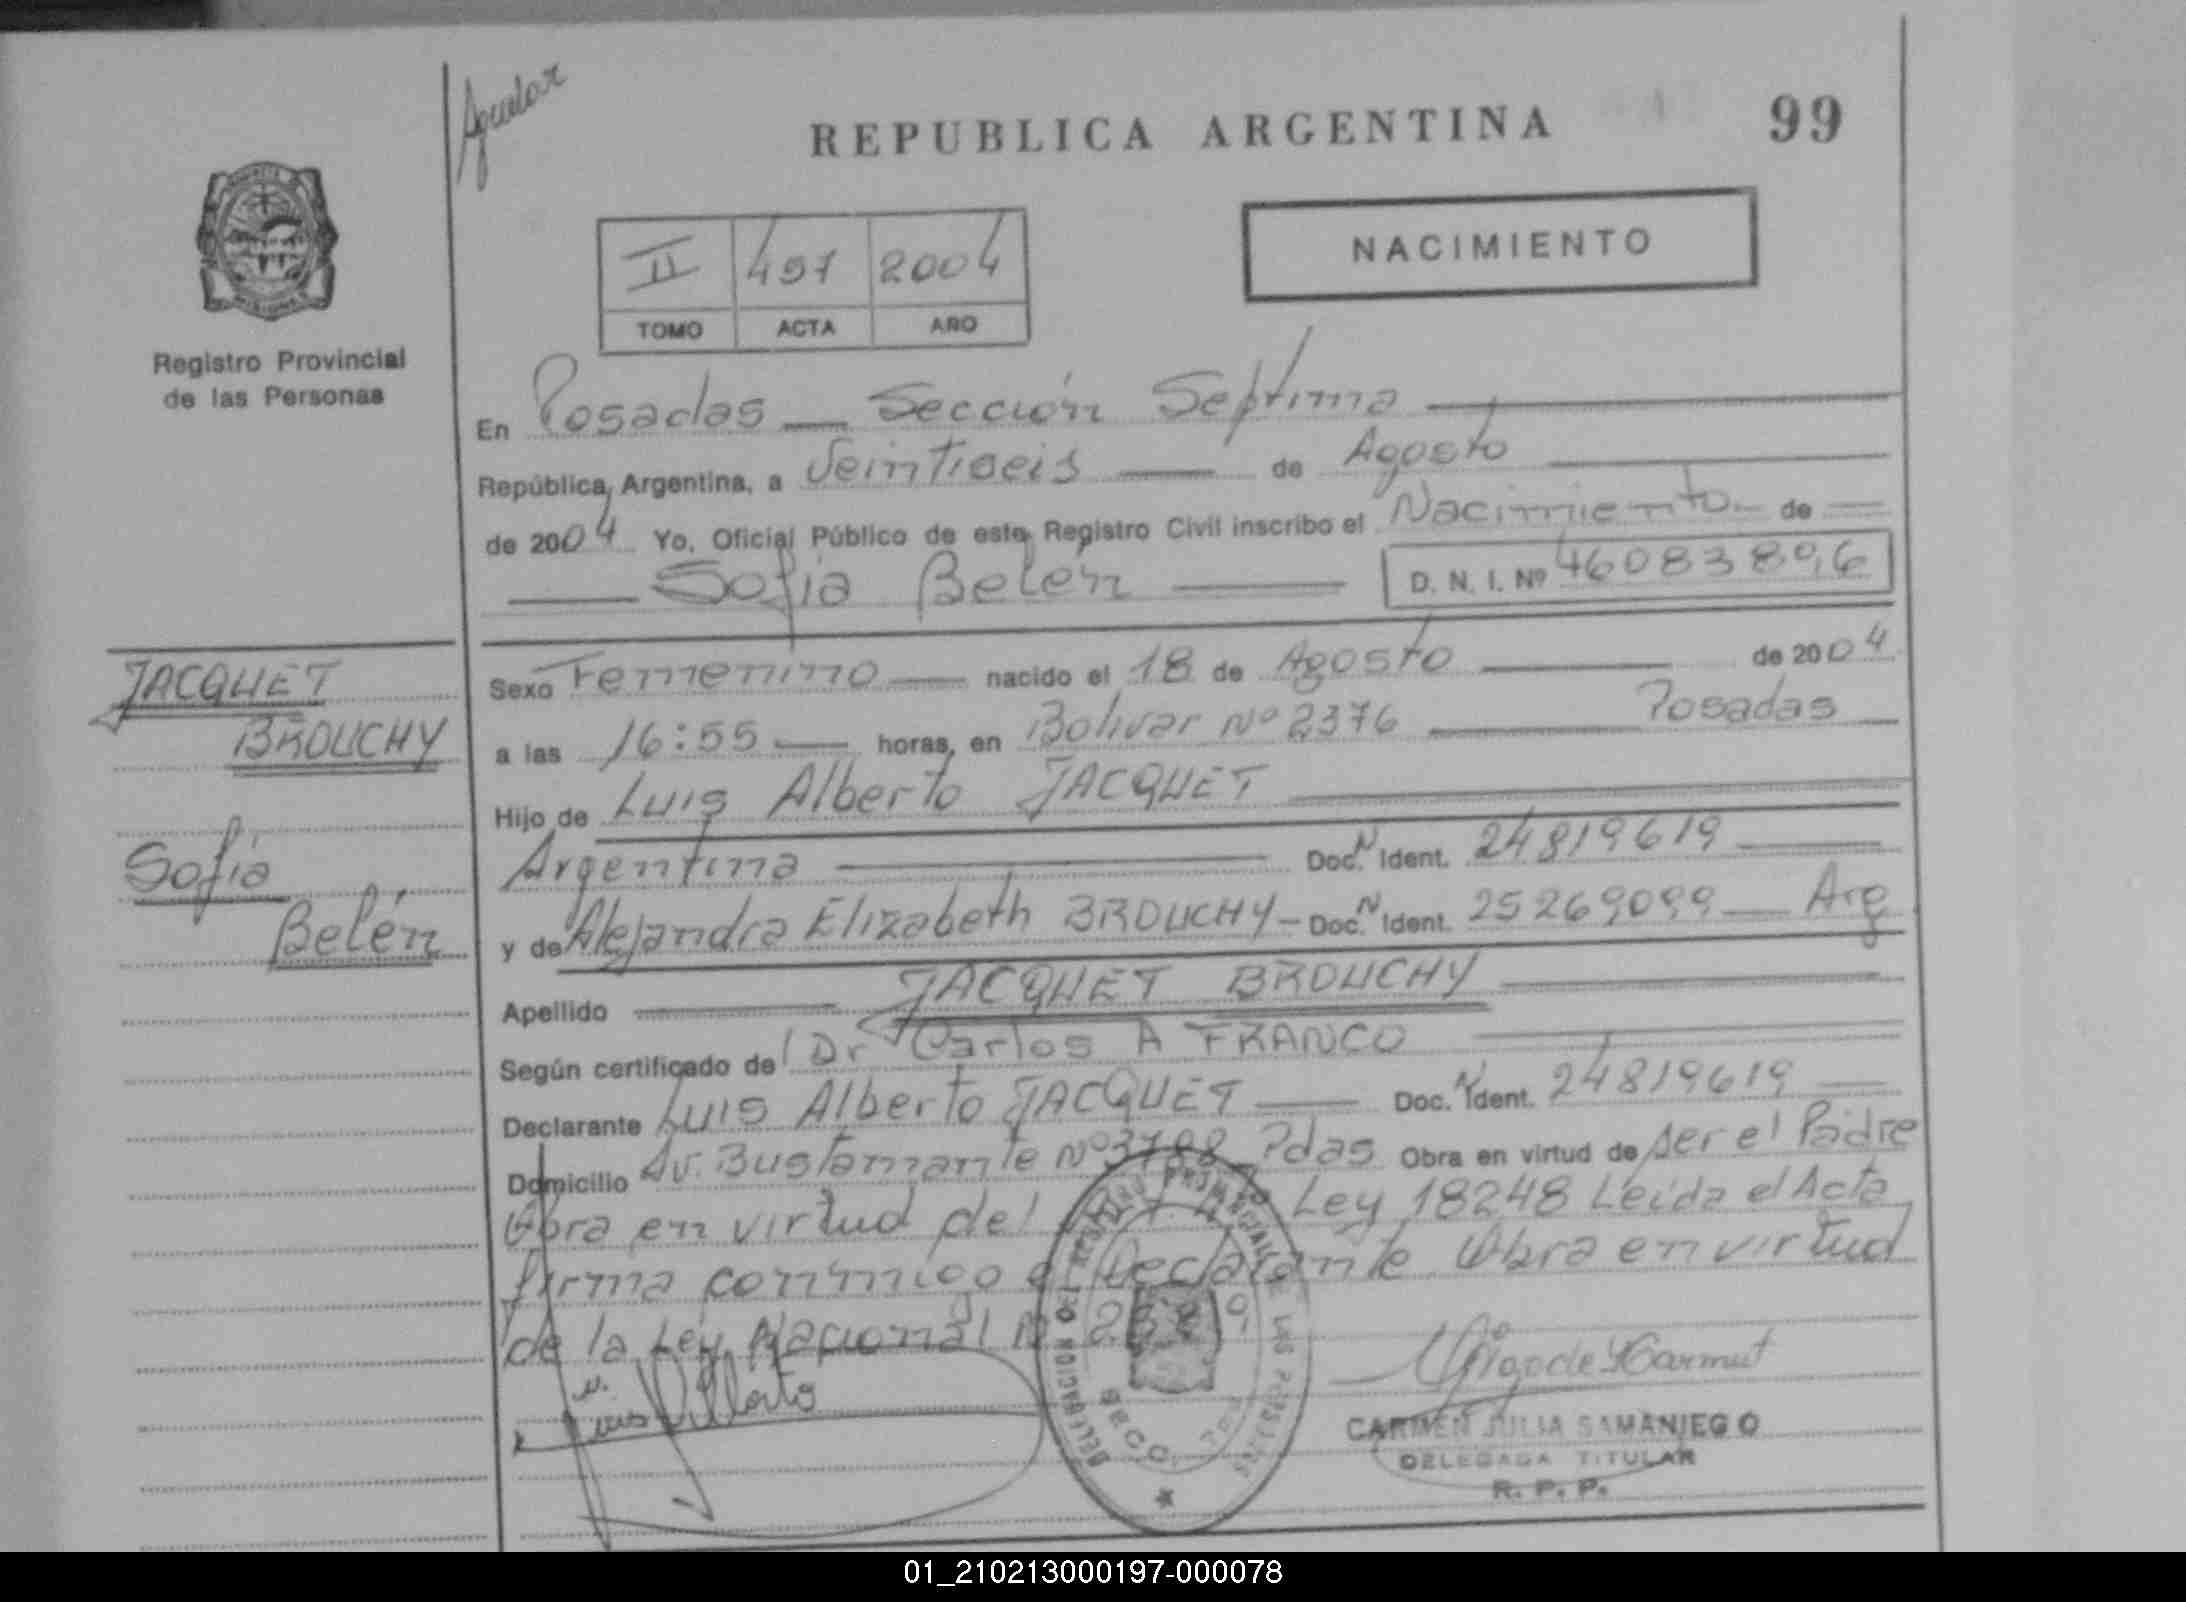 Aguilar
REPUBLICA ARGENTINA
99
II 497 2004
TOMO ACTA AÑO
NACIMIENTO
Registro Provincial
de las Personas
En Posadas — Sección Septima
República Argentina, a Veintiseis de Agosto
de 2004 Yo, Oficial Público de este Registro Civil inscribo el Nacimiento de
Sofia Belén
D. N. I. Nº 46083896
JACQUET
BROUCHY
Sofia
Belén
Sexo Femenino nacido el 18 de Agosto de 2004
a las 16:55 horas, en Bolivar Nº 2376 Posadas
Hijo de Luis Alberto JACQUET
Argentina Doc. N Ident. 24819619
y de Alejandra Elizabeth BROUCHY - Doc. N Ident. 25269099 Arg
Apellido JACQUET BROUCHY
Según certificado de Dr Carlos A FRANCO
Declarante Luis Alberto JACQUET Doc. N Ident. 24819619
Domicilio Av. Bustamante Nº 3788 Pdas Obra en virtud de ser el Padre
Obra en virtud del Ley 18248 Leida el Acta
firma conmigo el Declarante Obra en virtud
de la Ley Nacional N
CARMEN JULIA SAMANIEGO
DELEGADA TITULAR
R. P. P.
01_210213000197-000078